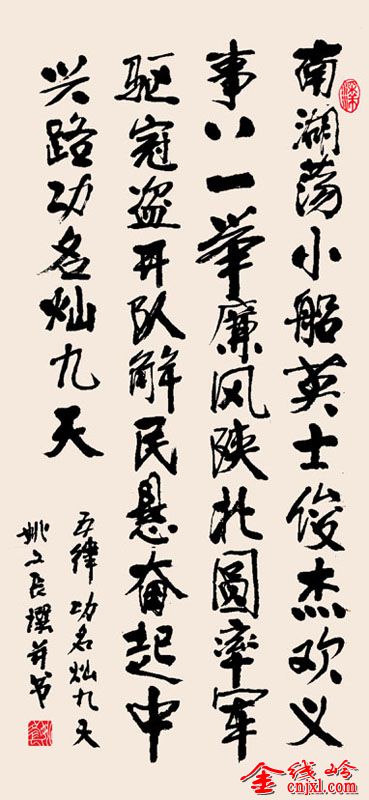 南湖荡小船英士俊杰欢义
事八一举廉风陕北圆率军
驱寇盗队解民悬奋起中
兴路功名灿九天
五律 功名灿九天
姚文撰并书
金线岭
cnjxl.com